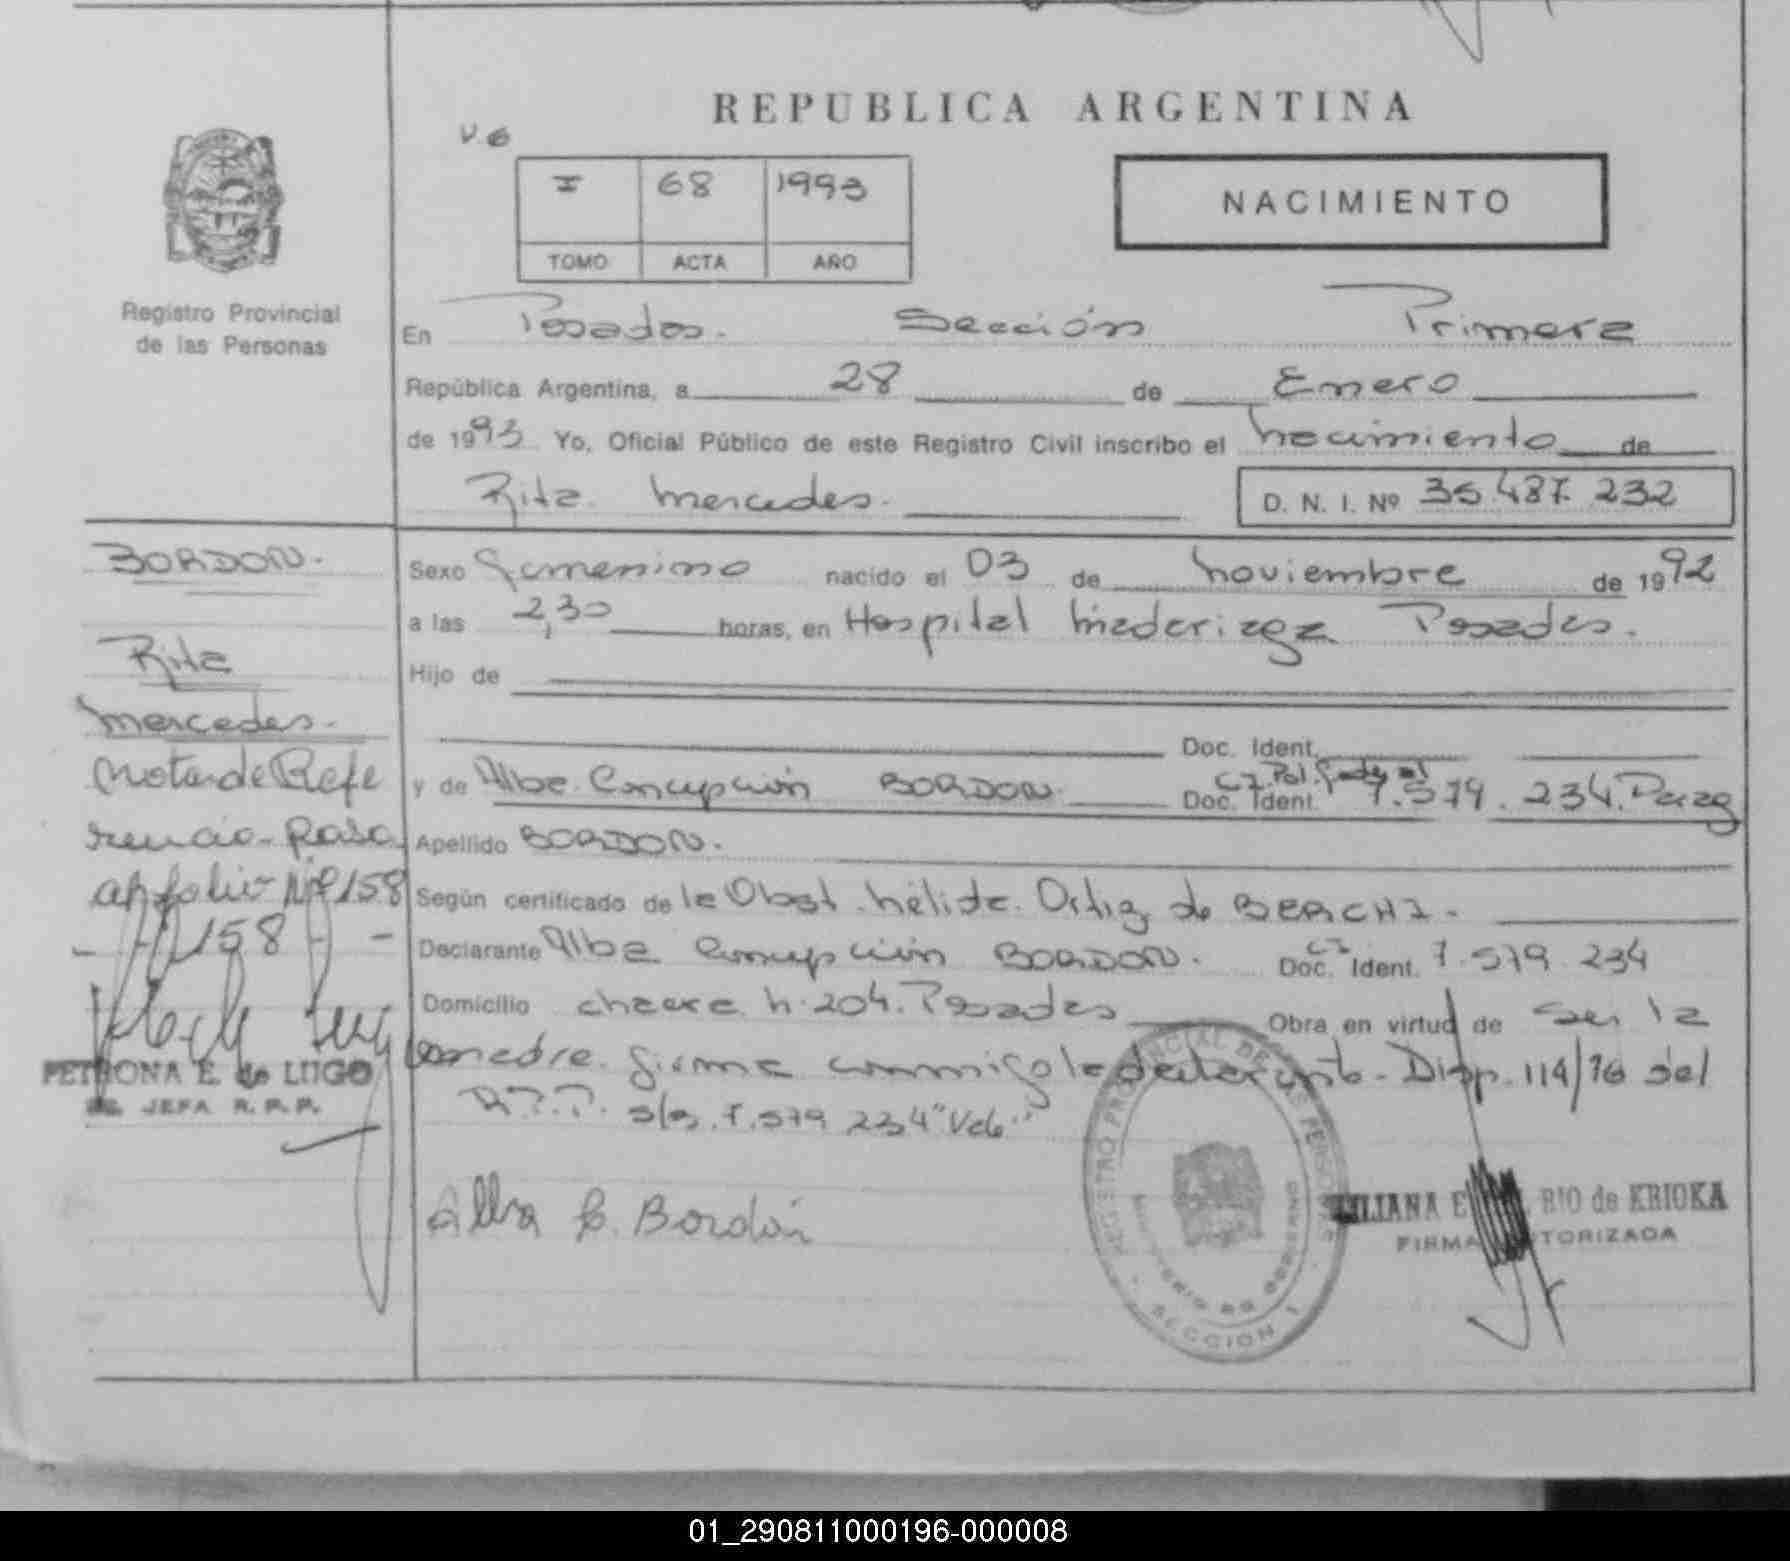 REPUBLICA ARGENTINA
V. 6
I 68 1993
TOMO ACTA AÑO
NACIMIENTO
Registro Provincial
de las Personas
En Posadas. Sección Primera
República Argentina, a 28 de Enero
de 1993 Yo, Oficial Público de este Registro Civil inscribo el nacimiento de
Rita Mercedes. D. N. I. Nº 35.487.232
BORDON.
Rita
Mercedes.
Nota de Refe
rencia - Pasa
al folio Nº 158
- 158 -
PETRONA E. de LUGO
JEFA R.P.P.
Sexo femenino nacido el 03 de noviembre de 1992
a las 2,30 horas, en Hospital Madariaga Posadas.
Hijo de
Doc. Ident.
y de Alba Concepción BORDON C.I. Pol. Federal Doc. Ident. 7.579.234.
Apellido BORDON.
Según certificado de la Obst. Nélida Ortiz de
Declarante Alba Concepción BORDON. CI Doc. Ident. 7.579.234
Domicilio chacra N. 204. Posadas Obra en virtud de Ser la
madre. firma conmigo la declarante - Disp. 114/76 del
R.P.P. s/r. 7.579.234 "Vale"
Alba C. Bordón
REGISTRO PROVINCIAL DE LAS PERSONAS
MINISTERIO DE GOBIERNO
SECCION 1
LILIANA E. RIO de KRIOKA
FIRMA AUTORIZADA
01_290811000196-000008